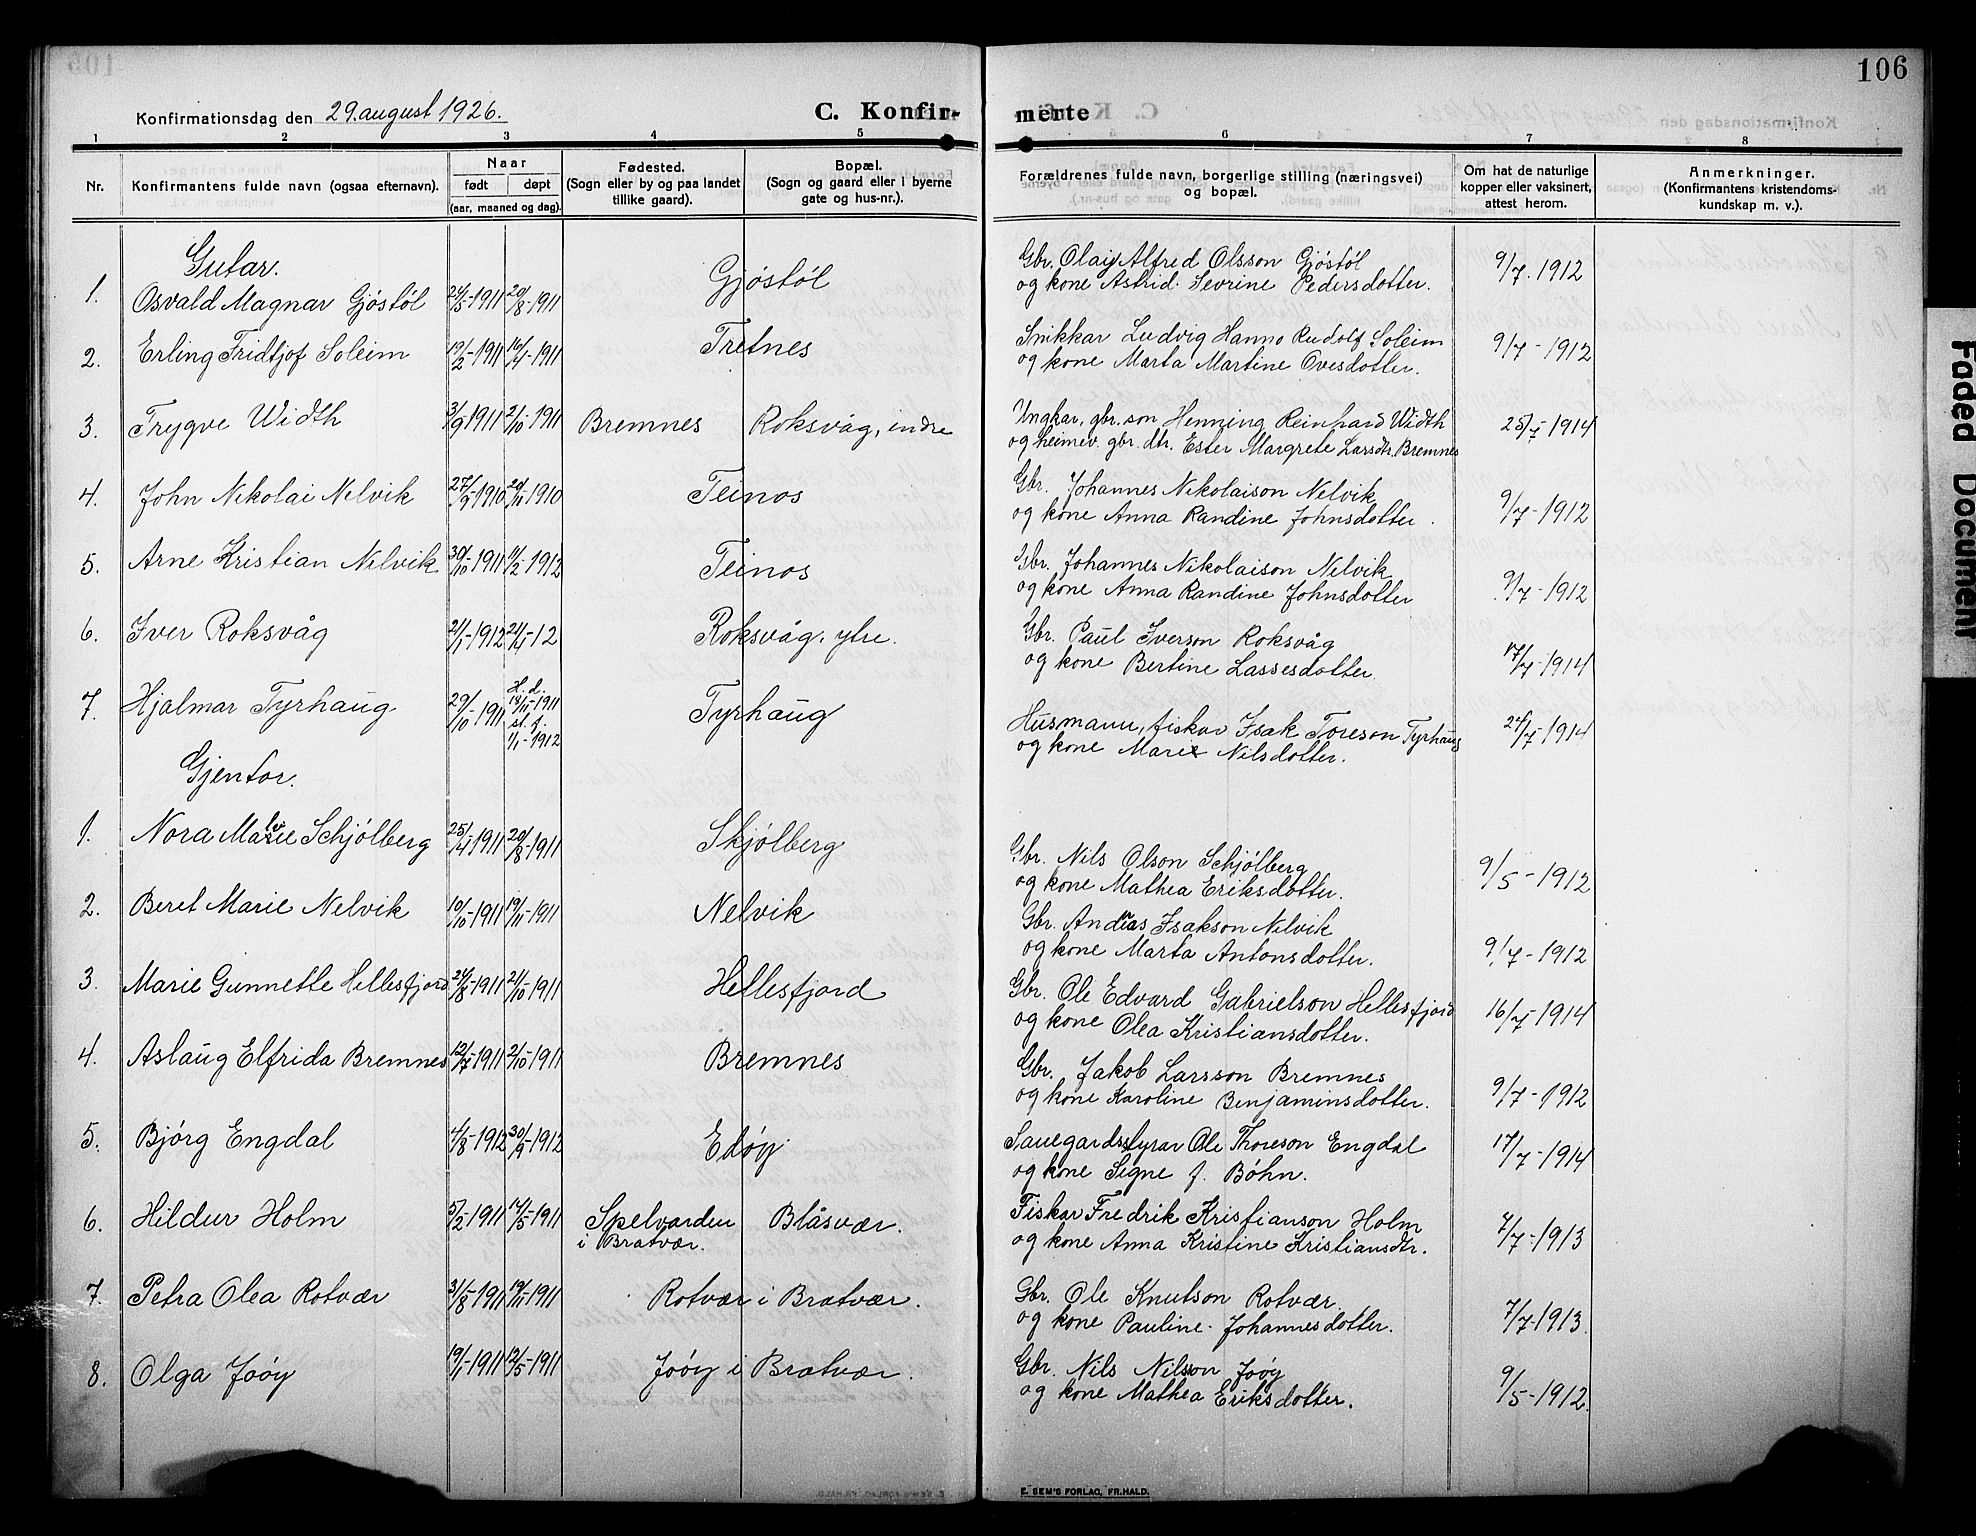 106
Konfirmationsdag den 29. august 1926.
C. Konfir-
merte
1 2 3 4 5 6 7 8
Nr.
Konfirmantens fulde navn (ogsaa efternavn).
Naar
født
døpt
(aar, maaned og dag).
Fødested.
(Sogn eller by og paa landet
tillike gaard).
Bopæl.
(Sogn og gaard eller i byerne
gate og hus-nr.).
Forældrenes fulde navn, borgerlige stilling (næringsvei)
og bopæl.
Om hat de naturlige
kopper eller vaksinert,
attest herom.
Anmerkninger.
(Konfirmantens kristendoms-
kundskap m. v.).
Gutar.
1. Osvald Magnar Gjøstøl 24/5-1911 20/8-1911 Gjøstøl
Gbr. Olaiy Alfred Olsson Gjøstøl
og kone Astrid Sevrine Pedersdotter.
9/7. 1912
2. Erling Fridtjof Soleim 19/2-1911 16/4-1911 Tretnes
Snikkar Ludvig Hanno Rudolf Soleim
og kone Marta Martine Ovesdotter.
9/7-1912
3. Trygve Width 3/9 1911 2/10-1911 Bremnes Roksvåg, indre
Ungkar, gbr. son Henning Reinhard Width
og heimev. gbr. dtr. Ester Margrete Larsdtr. Bremnes
25/7-1914
4. John Nikolai Nelvik 27/9-1910 20/11-1910 Teinos
Gbr. Johannes Nikolaison Nelvik
og kone Anna Randine Johnsdotter.
9/7-1912
5. Arne Kristian Nelvik 30/10-1911 11/2-1912 Teinos
Gbr. Johannes Nikolaison Nelvik
og kone Anna Randine Johnsdotter
9/7-1912
6. Iver Roksvåg 21/1-1912 21/4-12 Roksvåg, ytre.
Gbr. Paul Iverson Roksvåg
og kone Bertine Lassesdotter
17/7-1914
7. Hjalmar Tyrhaug 29/10-1911 H. d. 13/11-1911
st. f.
1/1-1912
Tyrhaug
Husmann, fiskar Isak Toreson Tyrhaug
og kone Marie Nilsdotter.
21/7-1914
Gjentor.
1. Nora Malie Schjølberg 25/4-1911 20/8-1911 Skjølberg
Gbr. Nils Olson Schjølberg
og kone Mathea Eriksdotter.
9/5-1912
2. Beret Marie Nelvik 10/10-1911 19/11-1911 Nelvik
Gbr. Andras Isakson Nelvik
og kone Marta Antonsdotter.
9/7-1912
3. Marie Gunnette Hellesfjord 24/8-1911 21/10-1911 Hellesfjord
Gbr. Ole Edvard Gabrielson Hellesfjord
og kone Olea Kristiansdotter.
16/7-1914
4. Aslaug Elfrida Bremnes 12/7-1911 2/10-1911 Bremnes
Gbr. Jakob Larsson Bremnes
og kone Karoline Benjaminsdotter.
9/7-1912
5. Bjørg Engdal 4/8-1912 30/9-1912 Edøy
Sauegardsstyrar Ole Thoreson Engdal
og kone Signe f. Bøhn.
17/7-1914
6. Hildur Holm 5/2-1911 14/5-1911 Spelvarden Blåsvær.
i Bratvær.
Fiskar Fredrik Kristianson Holm
og kone Anna Kristine Kristiansdtr.
7/7-1913
7. Petra Olea Rotvær 31/8-1911 19/11-1911 Rotvær i Bratvær.
Gbr. Ole Knutson Rotvær
og kone Pauline Johannesdotter.
7/7-1913
8. Olga Joøy 19/1-1911 12/5-1911 Joøy i Bratvær.
Gbr. Nils Nilsson Joøy
og kone Mathea Eriksdotter.
9/5-1912.
E. SEM'S FORLAG, FR.HALD.
Faded Document